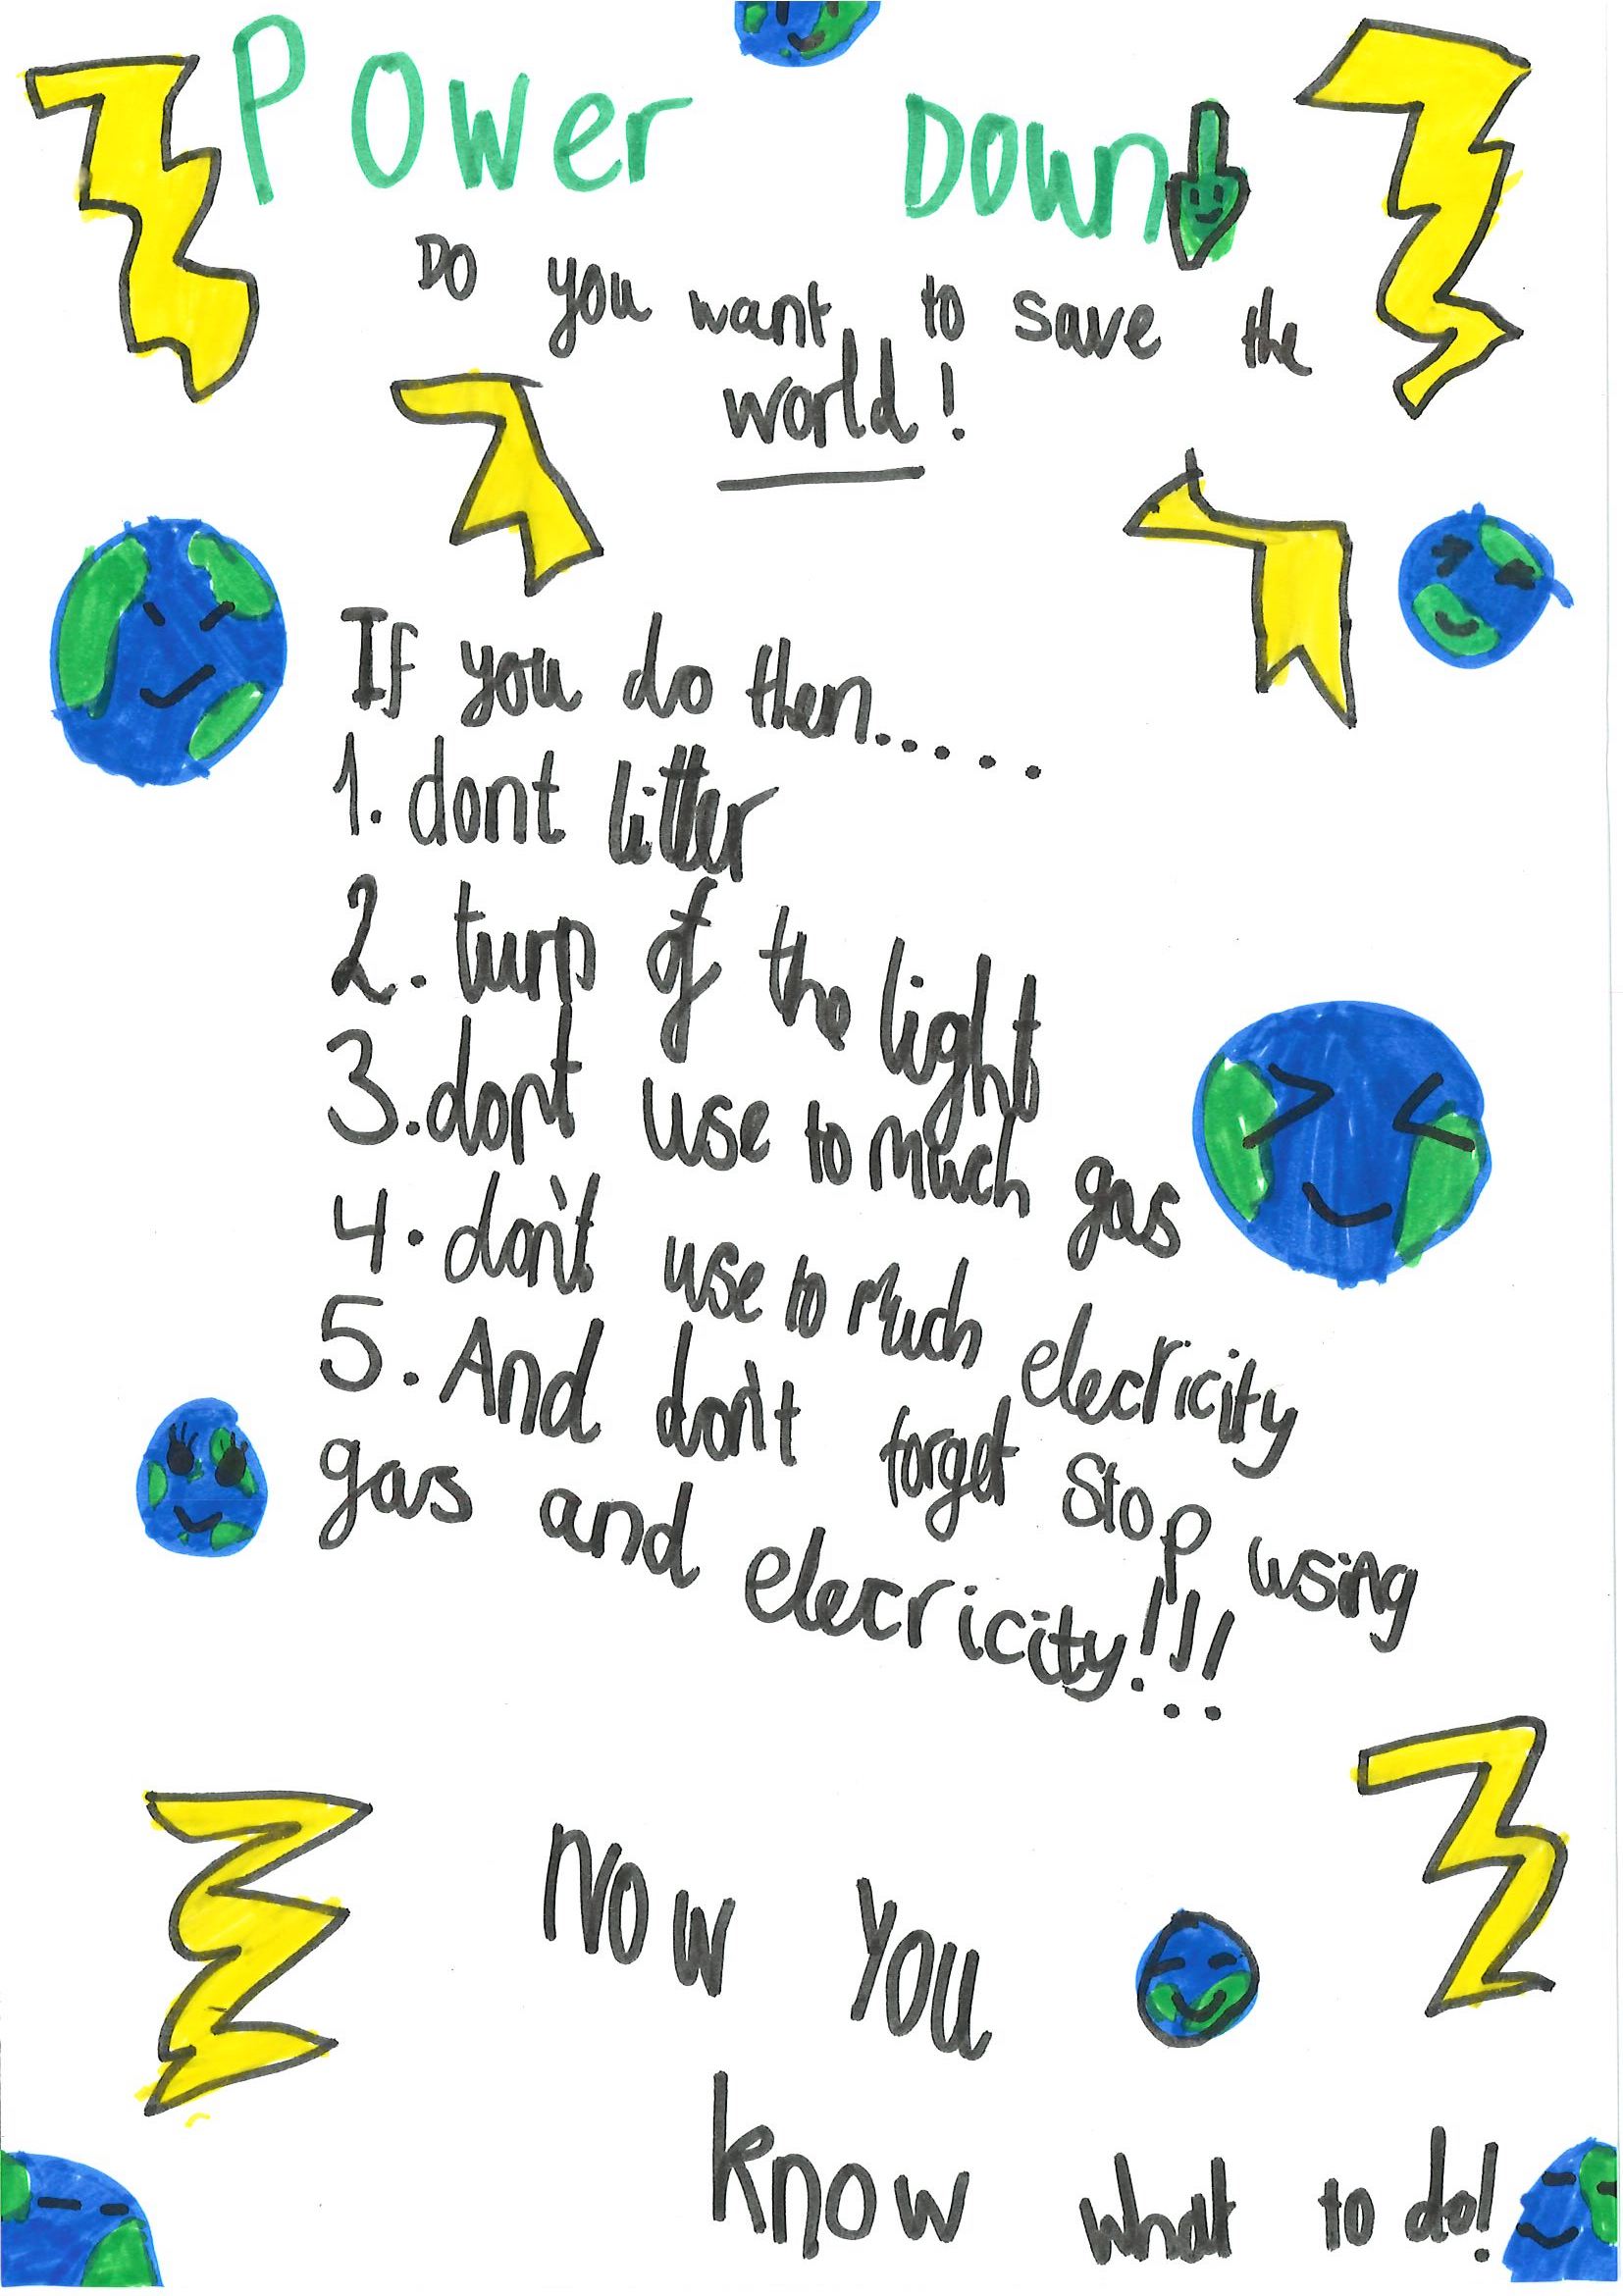 Power Down
Do you want to save the
world!
If you do then.....
1. dont litter
2. turn of the light
3. dont use to much gas
4. don't use to much electricity
5. And don't forget stop using
gas and elecricity!!!
Now You
know what to do!